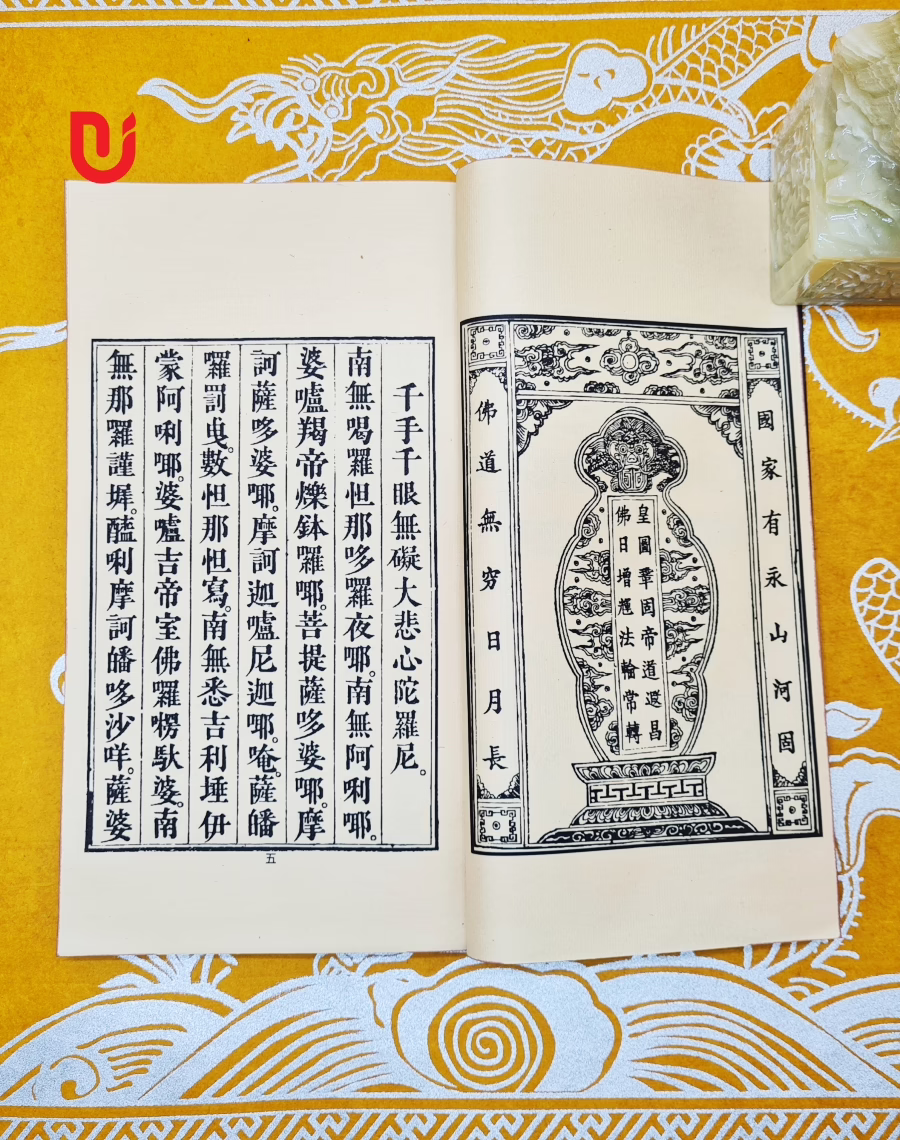 國家有永山河固
皇圖鞏固帝道遐昌
佛日增輝法輪常轉
佛道無穷日月長
千手千眼無礙大悲心陀羅尼。
南無喝羅怛那哆羅夜㖿。南無阿唎㖿。
婆嚧羯帝爍鉢羅㖿。菩提薩哆婆㖿。摩
訶薩哆婆㖿。摩訶迦嚧尼迦㖿。唵。薩皤
囉罰曳。數怛那怛寫。南無悉吉利埵伊
蒙阿唎㖿。婆嚧吉帝室佛羅楞馱婆。南
無那囉謹墀。醯唎摩訶皤哆沙咩。薩婆
五